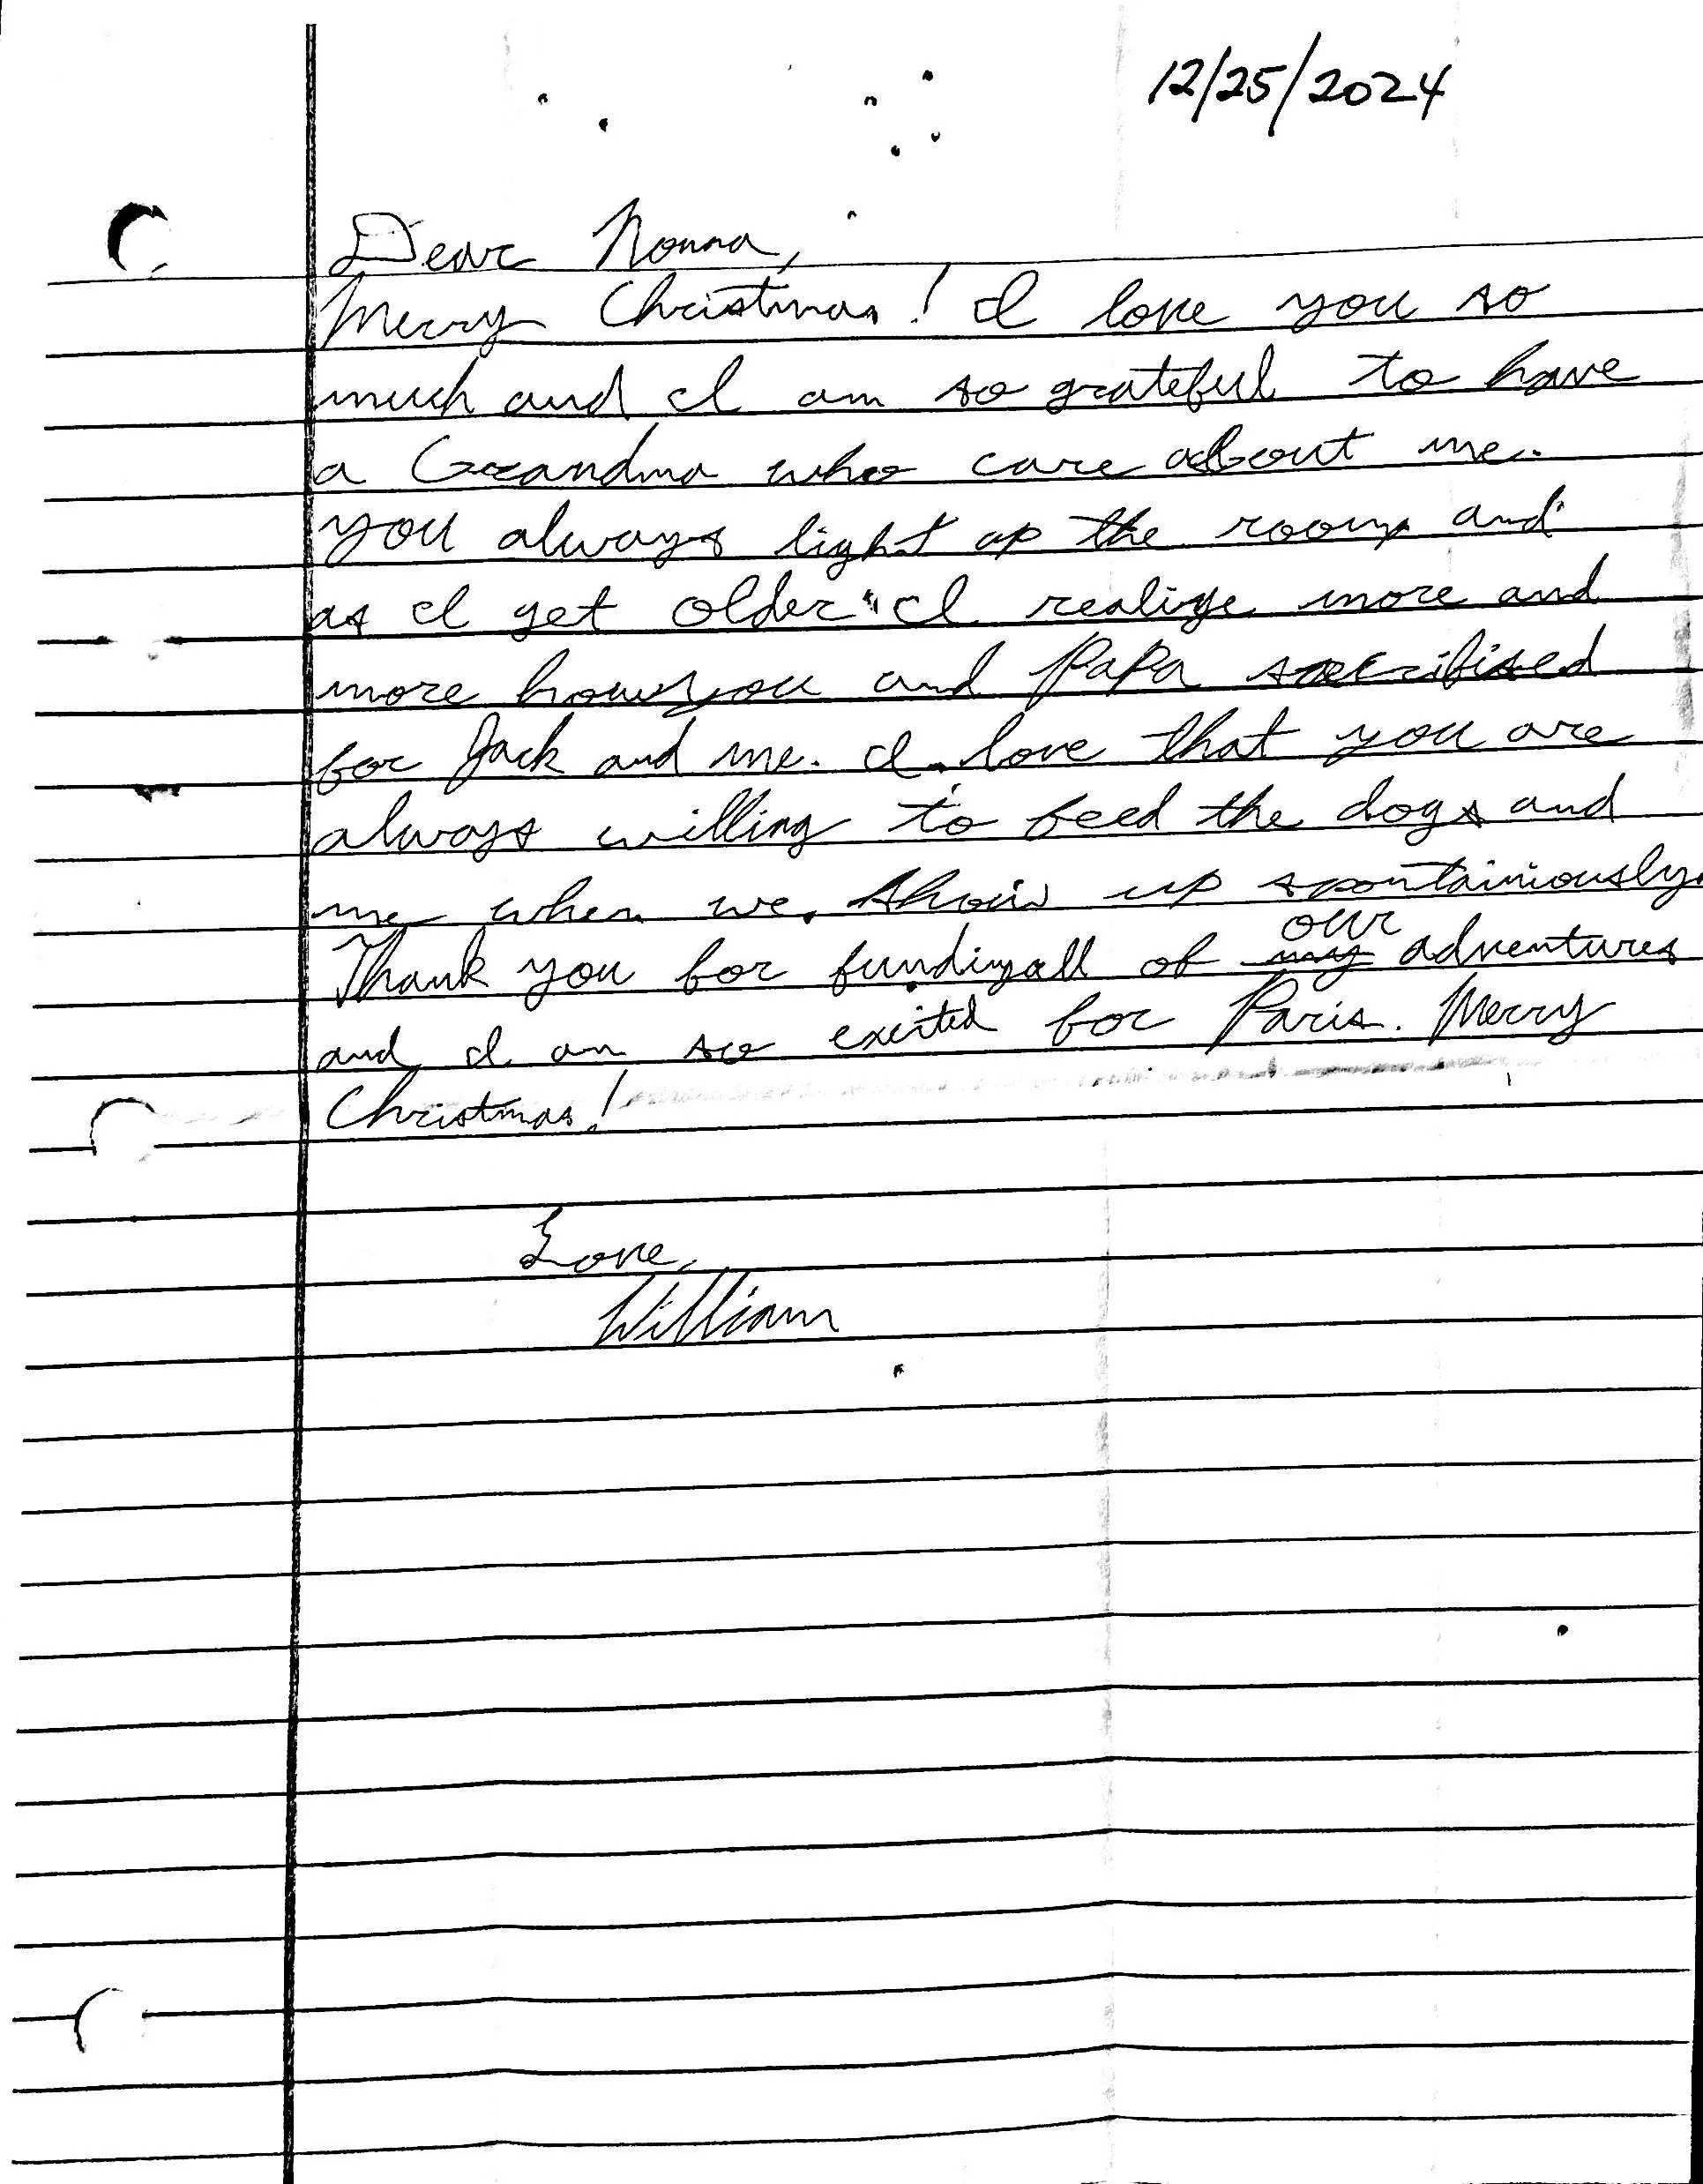 12/25/2024
Dear Nonna,
Merry Christmas! I love you so
much and I am so grateful to have
a Grandma who care about me.
you always light up the room and
as I get older I realize more and
more how you and PaPa sacrifised
for Jack and me. I love that you are
always willing to feed the dogs and
me when we show up spontainiously.
our
Thank you for funding all of my adventures
and I am so exited for Paris. Merry
Christmas!
Love,
William